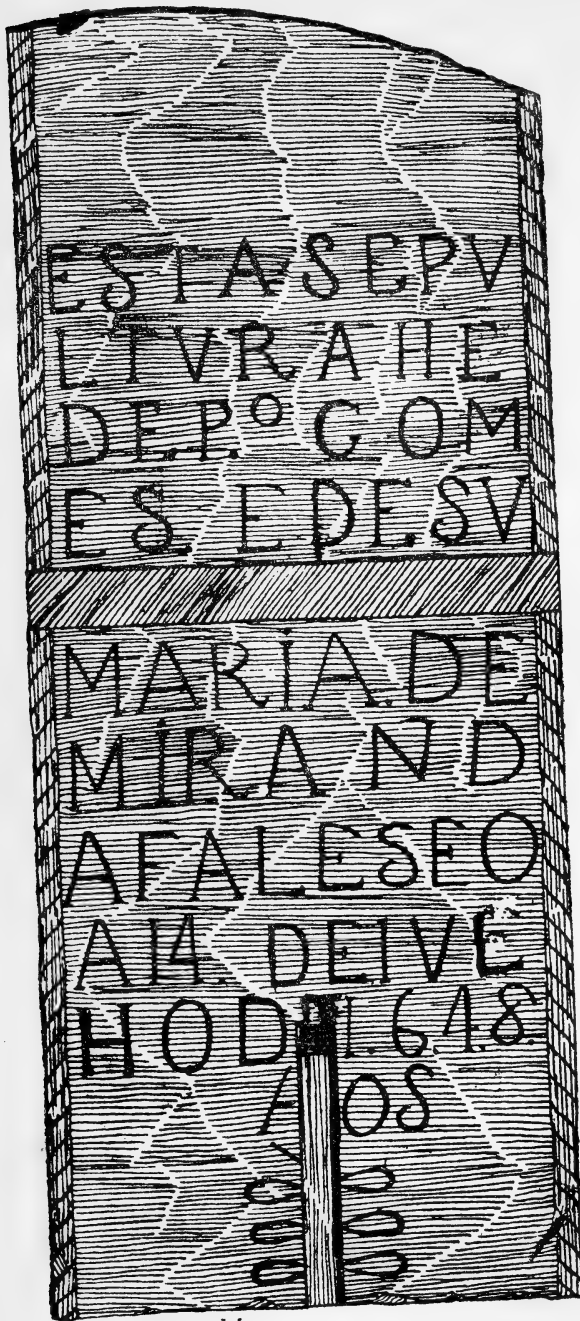 ESTA SEPV
LTVRA HE
DE P.º GOM
ES E DE SV
MARIA DE
MIRAND
A FALESEO
A 14. DE IVE
HO D 1.6.4.8.
A OS
V